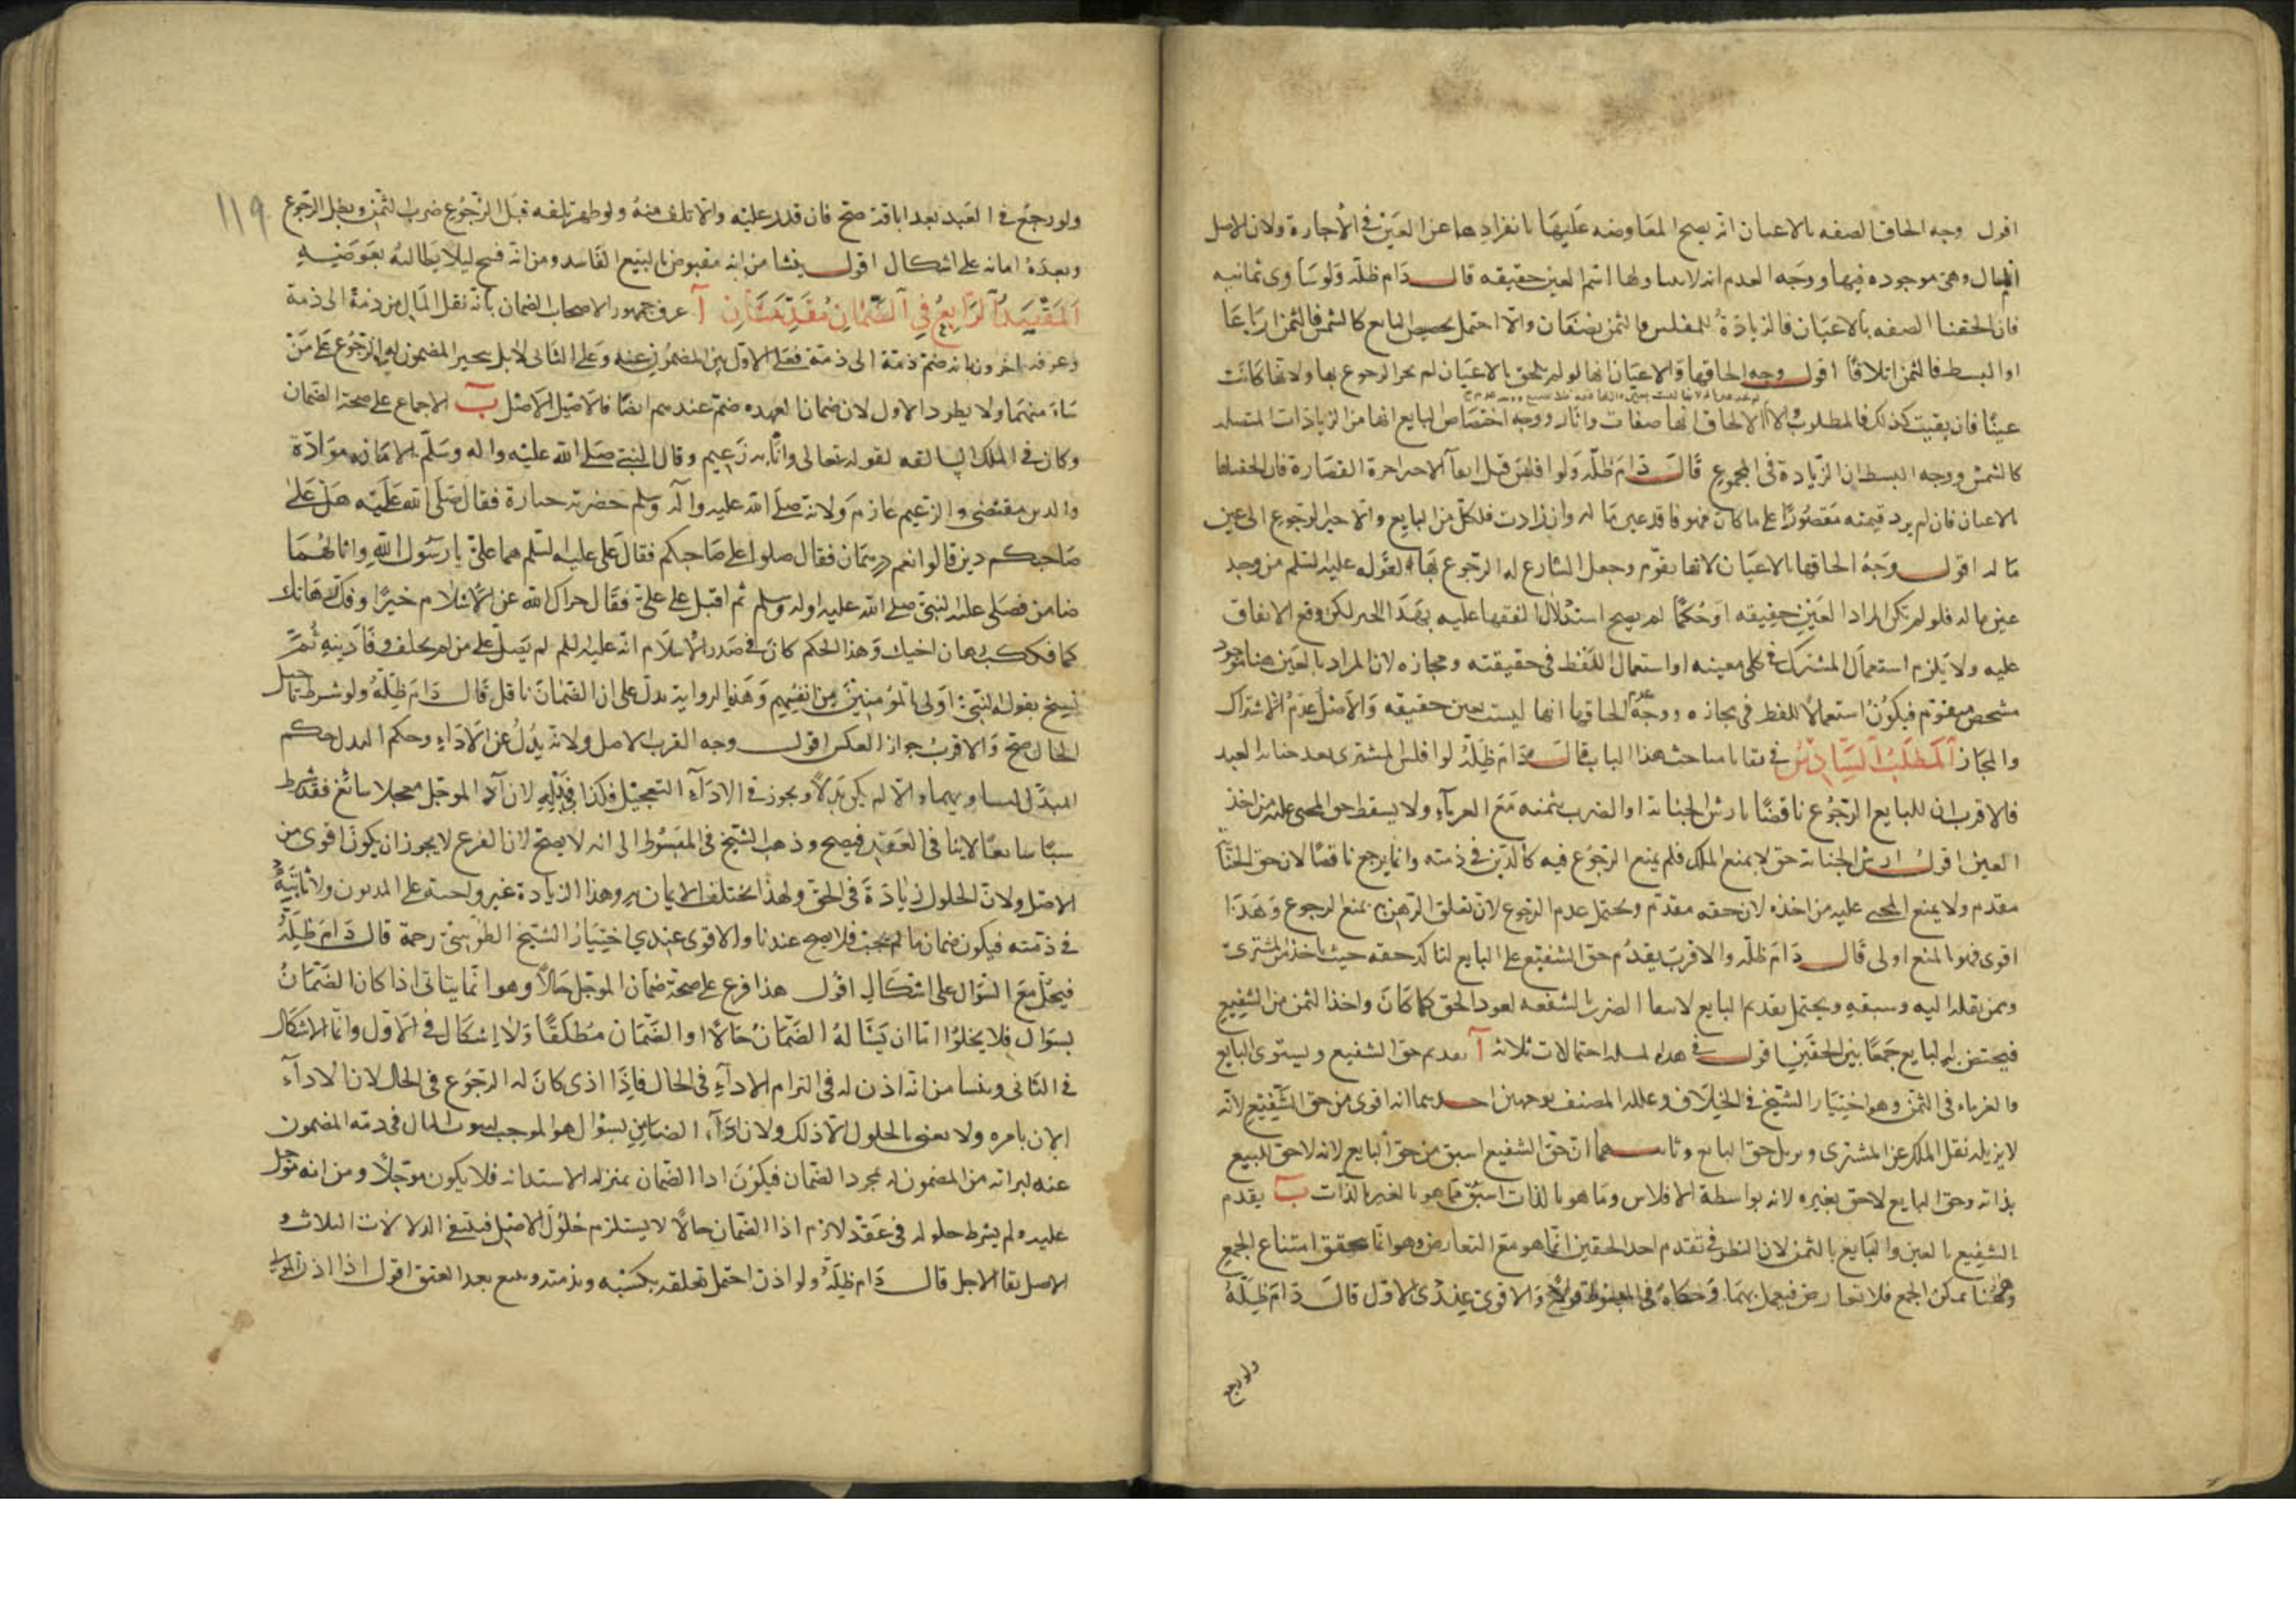 اقول وجه الحاق الصفه بالاعيان انه يصح المعاوضه عليها بانفرادها عن العين في الاجارة ولان الاصل
المال وهي موجوده فيها ووجه العدم انه لا يتناولها اسم العين حقيقه قال دام ظله ولو ساوى ثمانيه
فان الحقنا الصفه بالاعيان فالزيادة للمفلس والثمن نصفان والا احتمل تخصيص البايع كالثمن فالثمن ارباعا
او البسط فالثمن اثلاثا اقول وجه الحاقها والاعيان انها لو لم تلحق بالاعيان لم يجز الرجوع بها ولانها كانت
عينا فان بقيت كذلك فالمطلوب والا الالحاق انها صفات واثار ووجه اختصاص البايع انها من الزيادات المتصله
كالثمن ووجه البسط ان الزيادة في المجموع قال دام ظله ولو افلس قبل ايفآ الاجر اجرة القصارة فان الحقناها
بالاعيان فان لم يزد قيمته مقصورا على ما كان فهو فاقد عين ماله وان زادت فلكل من البايع والاجير الرجوع الى عين
ماله اقول وجه الحاقها بالاعيان لانها يقوم وجعل الشارع له الرجوع بها لقوله عليه السلم من وجد
عين ماله فلو لم تكن المراد العين حقيقه او حكما لم يصح استدلال الفقها عليه بهذا الخبر لكن وقع الاتفاق
عليه ولا يلزم استعمال المشترك في كلى معينيه او استعمال اللفظ في حقيقته ومجازه لان المراد بالعين هنا موجود
مشخص متقوم فيكون استعمالا للفظ في مجازه ووجه عدم الحاقها انها ليست بعين حقيقه والاصل عدم الاشتراك
والمجاز المطلب السادس في بقايا مباحث هذا الباب قال دام ظله لو افلس المشترى بعد جناية العبد
فالاقرب ان للبايع الرجوع ناقصا بارش الجناية او الضرب بثمنه مع الغرمآء ولا يسقط حق المجني عليه من اخذ
العين اقول ارش الجناية حق لا يمنع الملك فلم يمنع الرجوع فيه كالدين في ذمته وانما يرجع ناقصا لان حق الجناية
مقدم ولا يمنع المجنى عليه من اخذه لان حقه مقدم ويحتمل عدم الرجوع لان تعلق الرهن يمنع الرجوع وهذا
اقوى فهو بالمنع اولى قال دام ظله والاقرب يقدم حق الشفيع على البايع لتاكد حقه حيث ياخذ من المشترى
وممن نقله اليه وسبقه ويحتمل تقديم البايع لانتفآ الضرر بالشفعه لعود الحق كما كان واخذ الثمن من الشفيع
فيختص به البايع جمعا بين الحقين اقول في هذه المسله احتمالات ثلاثه آ تقديم حق الشفيع ويستوى البايع
والغرماء في الثمن وهو اختيار الشيخ في الخلاف وعلله المصنف بوجهين احدهما انه اقوى من حق الشفيع لانه
لا يزيله نقل الملك عن المشترى ويزيل حق البايع وثانيهما ان حق الشفيع اسبق من حق البايع لانه لاحق للبيع
بذاته وحق البايع لاحق بغيره لانه بواسطة الافلاس وما هو بالذات اسبق مما هو بالغير بالذات ب يقدم
الشفيع بالعين والبايع بالثمن لان النظر في تقدم احد الحقين انما هو مع التعارض وهو انما يتحقق امتناع الجمع
وههنا يمكن الجمع فلا تعارض فيعمل بهما وحكاه في المبسوط قولا والاقوى عندى الاول قال دام ظله
ولو رجع
١١٩
ولو رجع في العبد بعد اباقه صح فان قدر عليه والا تلف منه ولو ظهر تلفه قبل الرجوع ضرب بالثمن وبطل الرجوع
وبعده امانه على اشكال اقول ينشا من انه مقبوض بالبيع الفاسد ومن انه فسخ ليلا يطالبه بعوضيه
المقصد الرابع في الضمان مقدمتان آ عرف جمهور الاصحاب الضمان بانه نقل المال من ذمة الى ذمة
وعرفه اخرون بانه ضم ذمة الى ذمة فعلى الاول يبرى المضمون عنه وعلى الثانى لا بل يتخير المضمون له في الرجوع على من
شاء منهما ولا يطرد الاول لان ضمان العهده ضم عندهم ايضا فالاصيل الاصل ب الاجماع على صحة الضمان
وكان في الملل السالفه لقوله تعالى وانا به زعيم وقال النبي صلى الله عليه واله وسلم الامانه موادة
والدين مقتضى والزعيم غارم ولانه صلى الله عليه وآله وسلم حضرته جنازة فقال صلى الله عليه هل على
صاحبكم دين قالوا نعم درهمان فقال صلوا على صاحبكم فقال على عليه السلم هما على يا رسول الله وانا لهما
ضامن فصلى عليه النبي صلى الله عليه واله وسلم ثم اقبل على علي فقال جزاك الله عن الاسلام خيرا وفك رهانك
كما فككت رهان اخيك وهذا الحكم كان في صدر الاسلام انه عليه السلم لم يصل على من لم يخلف وفآ دينه ثم
نسخ بقوله النبي اولى بالمؤمنين من انفسهم وهذه الرواية تدل على ان الضمان ناقل قال دام ظله ولو شرط تاجيل
الحال صح والاقرب جواز العكس اقول وجه القرب الاصل ولانه بدل عن الادآء وحكم البدل حكم
المبدل لتساويهما والا لم يكن بدلا ويجوز في الادآء التعجيل فكذا في بدله لان ادآ الموجل معجلا سائغ فقد شرط
سببا سايغا لا ينافى العقد فيصح وذهب الشيخ في المبسوط الى انه لا يصح لان الفرع لا يجوز ان يكون اقوى من
الاصل ولان الحلول زيادة في الحق ولهذا يختلف الاثمان به وهذا الزيادة غير واجبة على المديون ولا ثابتة
في ذمته فيكون ضمان ما لم يجب فلا يصح عندنا والاقوى عندي اختيار الشيخ الطوسي رحمه قال دام ظله
فيحل مع السؤال على اشكال اقول هذا فرع على صحة ضمان الموجل حالا وهو انما يتاتى اذا كان الضمان
بسؤال فلا يخلوا اما ان يسأله الضمان حالا او الضمان مطلقا ولا اشكال في الاول وانما الاشكال
في الثانى وينشا من انه اذن له في التزام الادآء في الحال فاذا ادى كان له الرجوع في الحال لان الادآء
الان بامره ولا يعنى بالحلول الا ذلك ولان ادآء الضامن بسؤال هو الموجب لثبوت المال في ذمة المضمون
عنه لبراته من المضمون له بمجرد الضمان فيكون اداا لضمان بمنزله الاستدانه فلا يكون موجلا ومن انه موجل
عليه ولم يشرط حلوله في عقد لازم اذا الضمان حالا لا يستلزم حلول الاصل فينتفى الدلالات الثلاث و
الاصل بقا الاجل قال دام ظله ولو اذن احتمل تعلقه بكسبه وبذمته ويتبع بعد العتق اقول اذا اذن المولى